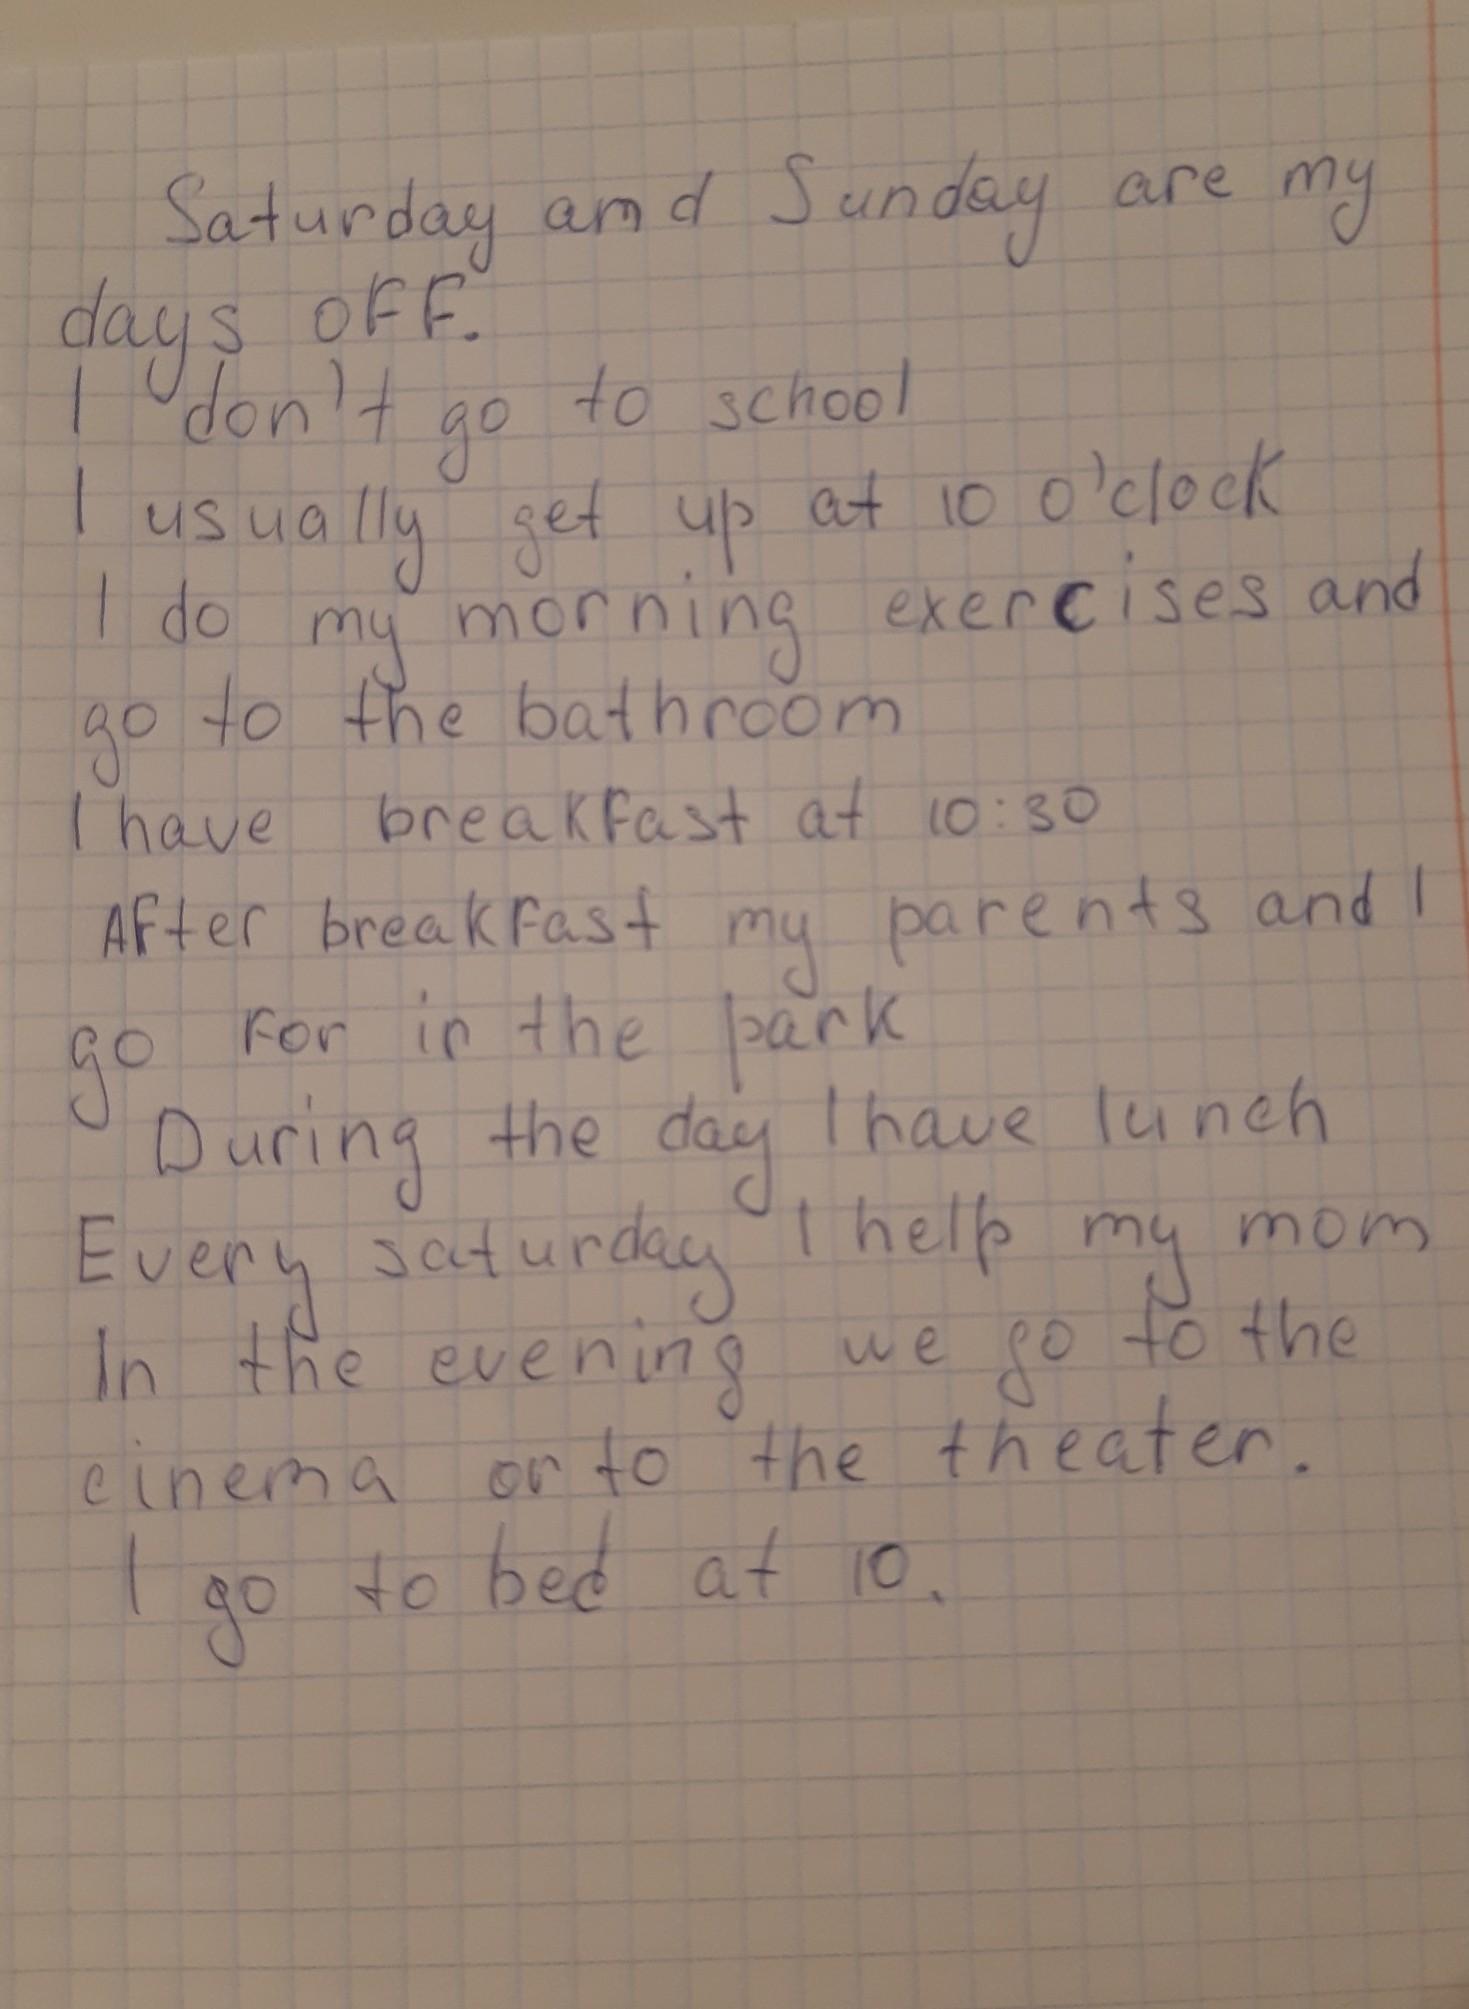 Saturday amd Sunday are my
days off.
I don't go to school
I usually get up at 10 o'clock
I do my morning exercises and
go to the bathroom
I have breakfast at 10:30
After breakfast my parents and I
go for in the park
During the day I have lunch
Every saturday I help my mom
In the evening we go to the
cinema or to the theater.
I go to bed at 10.